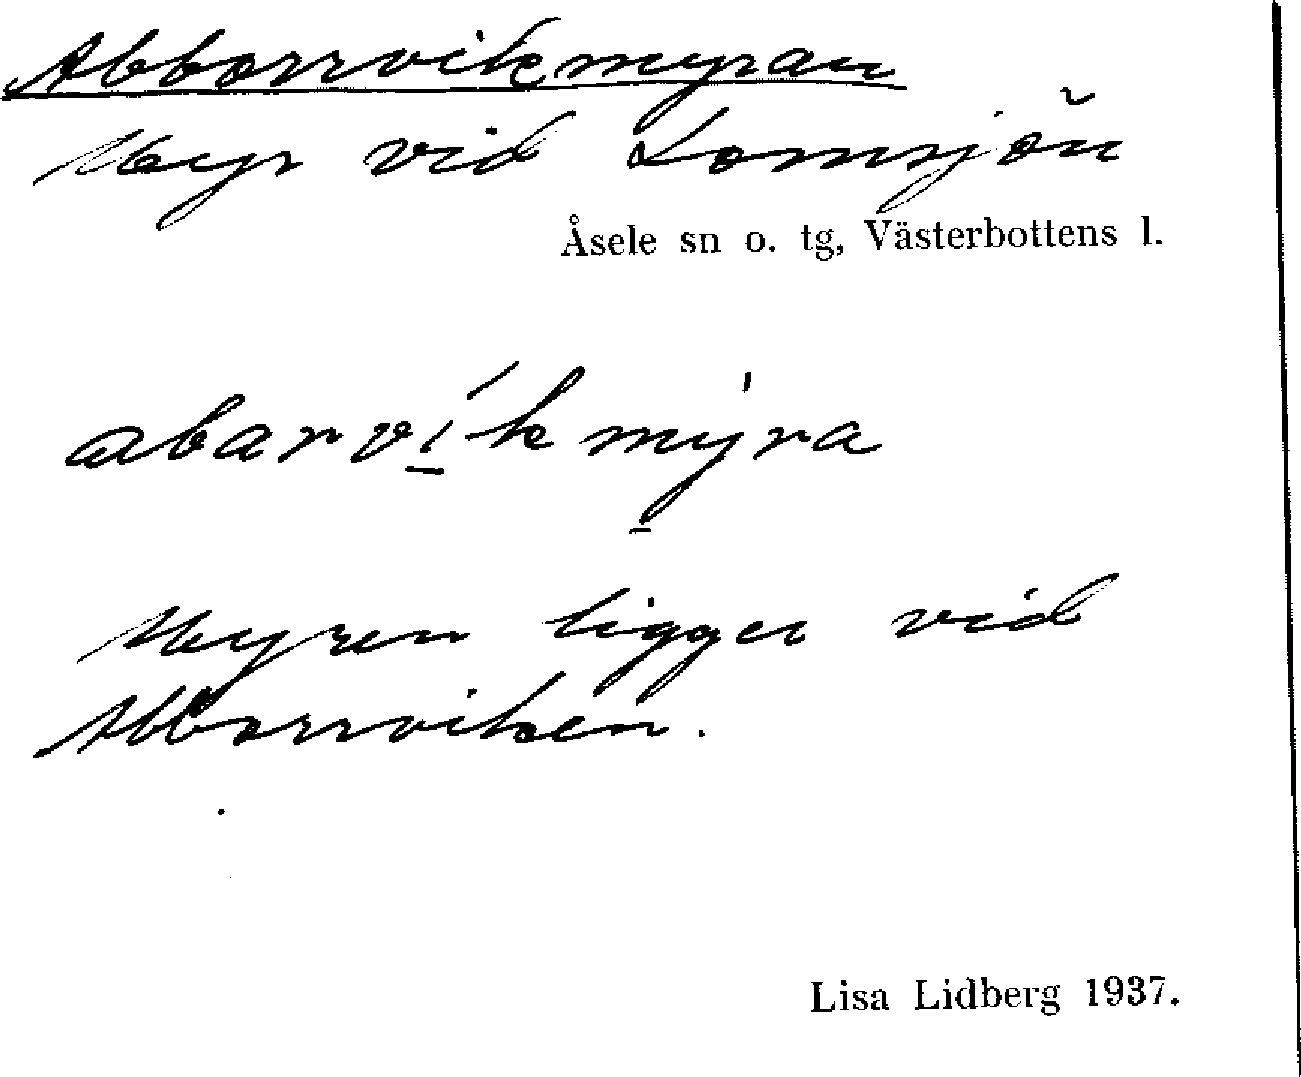 Abborrvikmyran
Myr vid Lomsjön
Åsele sn o. tg, Västerbottens l.
abarví̱kmy̱̍ra
Myren ligger vid
Abborrviken.
Lisa Lidberg 1937.